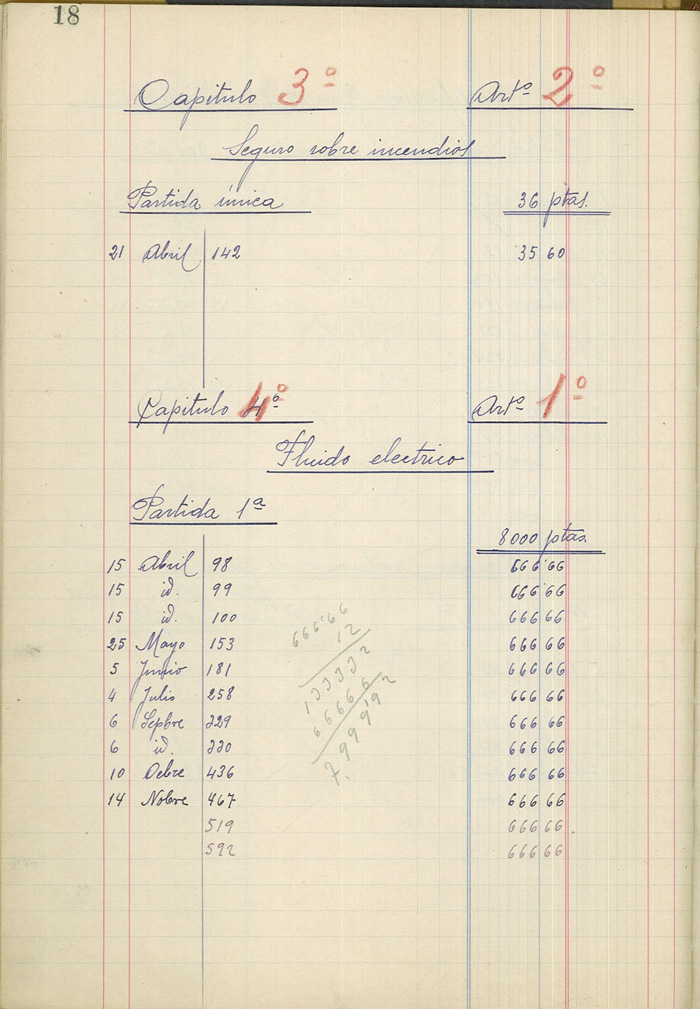 18
Capitulo 3º Artº 2º
Seguro sobre incendios
Partida única 36 ptas.
21 Abril 142 35 60
Capitulo 4º Artº 1º
Fluido electrico
Partida 1ª
8000 ptas.
15 Abril 98 666'66
15 id. 99 666'66
15 id. 100 666 66
25 Mayo 153 666 66
5 Junio 181 666 66
4 Julio 258 666 66
6 Sepbre 329 666 66
6 id. 330 666 66
10 Octbre 436 666 66
14 Nobre 467 666 66
519 666 66
592 666 66
666'66
12
133332
66666
7.999'92